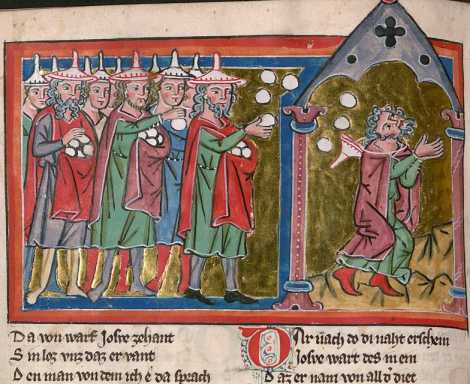 Da von warf Josve zehant
Sin loz vnz daz er vant
Den man von dem ich e da sprach
Dar nach do di naht erschein
Josve wart des in ein
Daz er nam von all diet